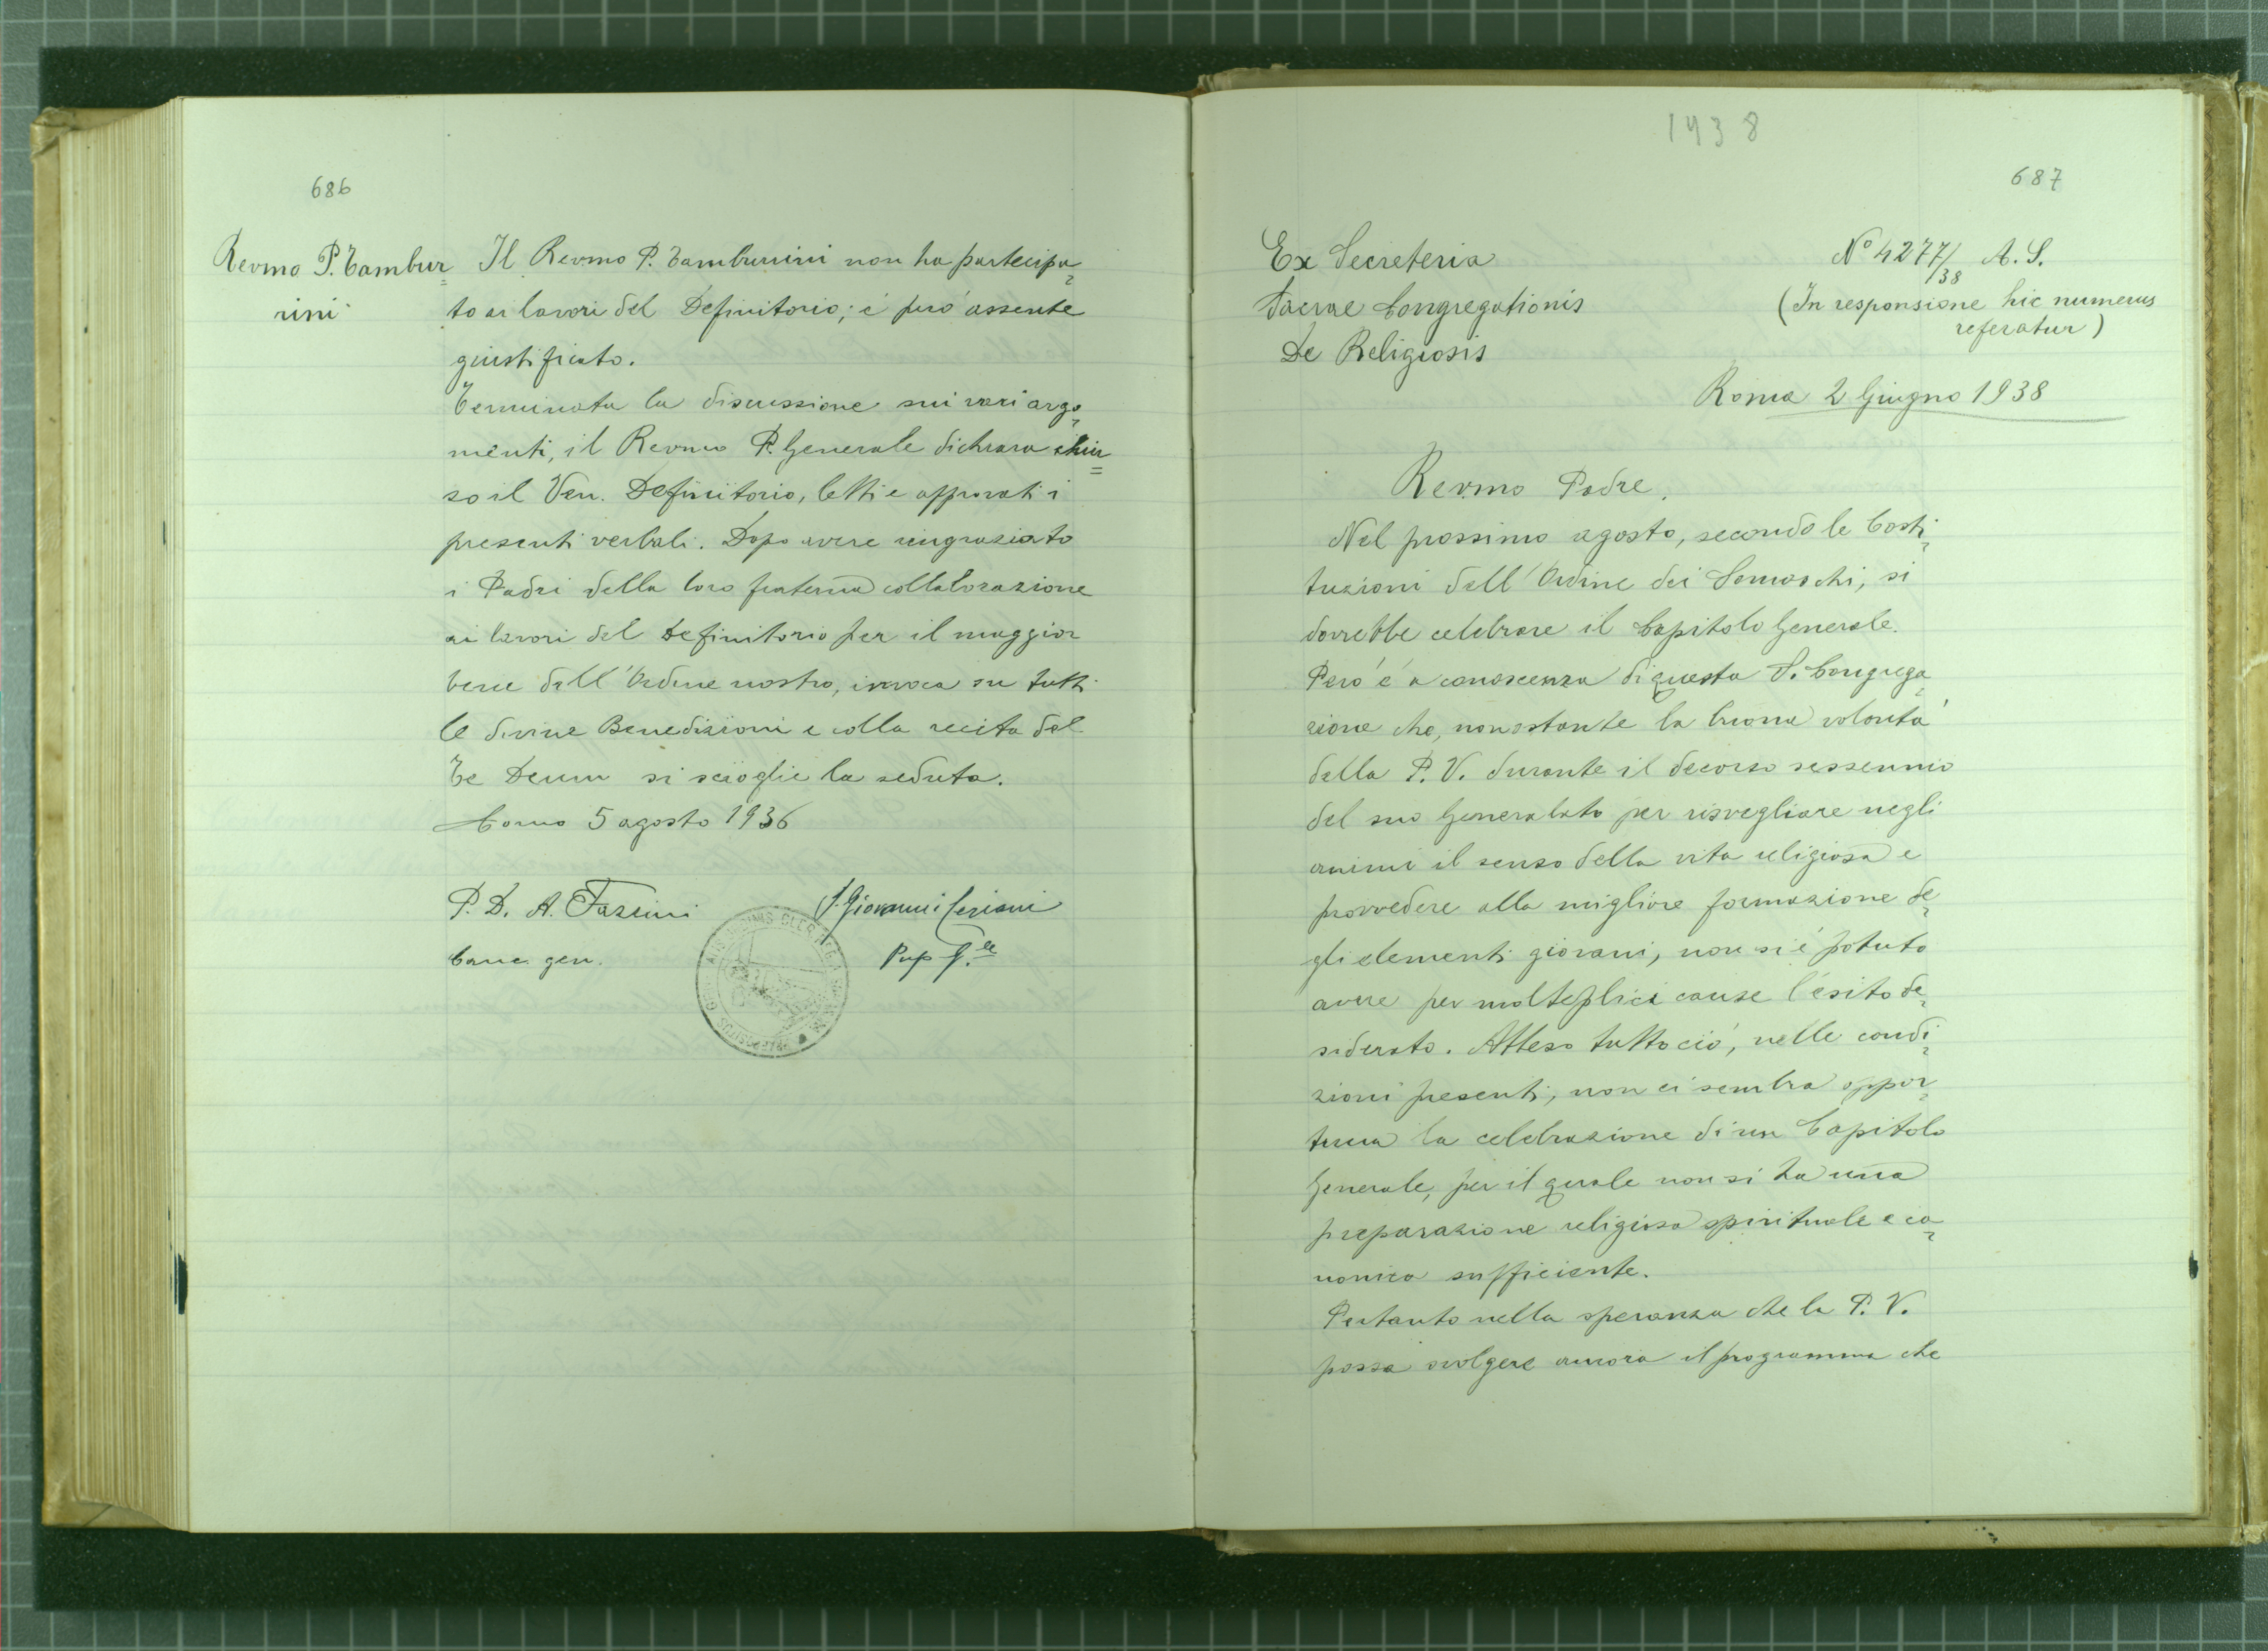 686
Revmo P. Tambur=
rini
Il Revmo P. Tamburrini non ha partecipa=
to ai lavori del Definitorio; è però assente
giustificato.
Terminata la discussione sui vari argo=
menti, il Revmo P. Generale dichiara chiu=
so il Ven. Definitorio, letti e approvati i
presenti verbali. Dopo avere ringraziato
i Padri della loro fraterna collaborazione
ai lavori del Definitorio per il maggior
bene dell'Ordine nostro, invoca su tutti
le divine Benedizioni e colla recita del
Te Deum si scioglie la seduta.
Como 5 agosto 1936
P. D. A. Fazzini
P. Giovanni Ceriani
Canc. gen.
Prep G.le
1938
687
Ex Secreteria
Sacrae Congregationis
De Religiosis
N° 4277/38 A. S.
(In responsione hic numerus
referatur)
Roma 2 Giugno 1938
Revmo Padre,
Nel prossimo agosto, secondo le Costi=
tuzioni dell'Ordine dei Somaschi, si
dovrebbe celebrare il Capitolo Generale.
Però è a conoscenza di questa S. Congrega=
zione che, nonostante la buona volontà
della P. V. durante il decorso sessennio
del suo Generalato per risvegliare negli
animi il senso della vita religiosa e
provvedere alla migliore formazione de=
gli elementi giovani, non si è potuto
avere per molteplici cause l'esito de=
siderato. Atteso tutto ciò, nelle condi=
zioni presenti, non ci sembra oppor=
tuna la celebrazione di un Capitolo
Generale, per il quale non si ha una
preparazione religiosa spirituale e ca=
nonica sufficiente.
Pertanto nella speranza che la P. V.
possa svolgere ancora il programma che